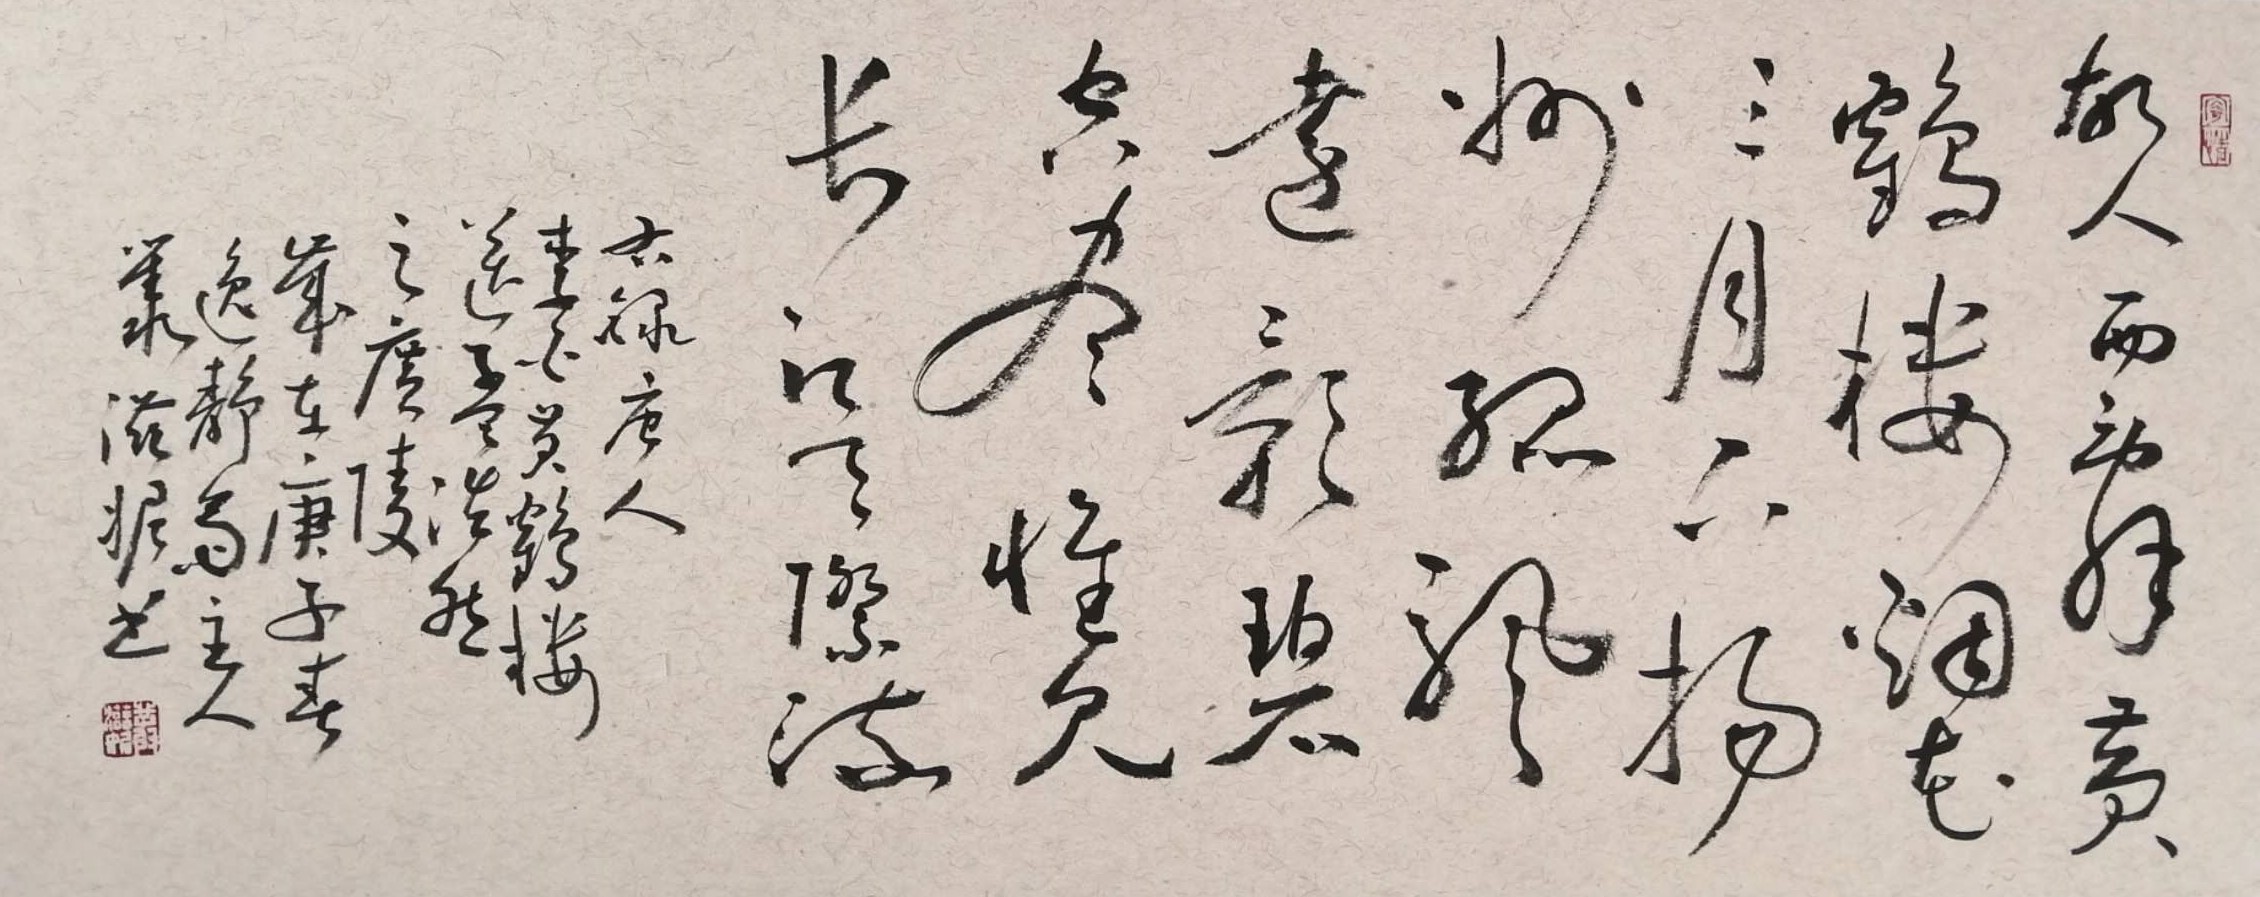 故人西辞黄
鹤楼烟花
三月下扬
州孤帆
远影碧
空尽惟见
长江天际流
右录唐人
李白黄鹤楼
送孟浩然
之广陵
岁在庚子春
逸静斋主人
书